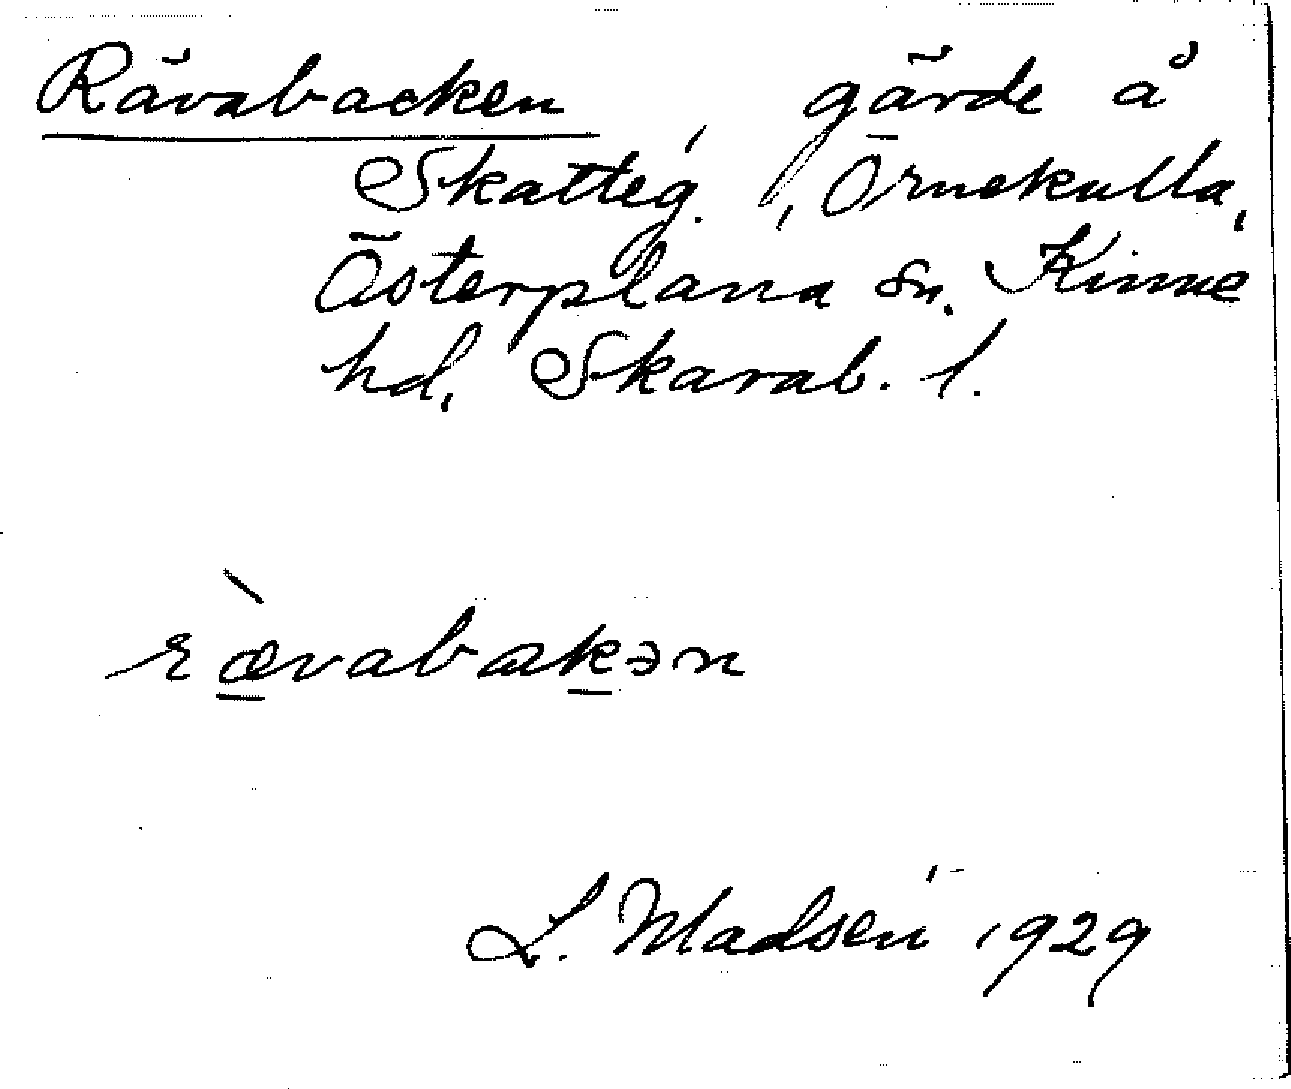 Rävabacken gärde å
Skatteg. i Örnekulla,
Österplana sn. Kinne
hd. Skarab. l.
ræ̀vabakən
L. Madsén 1929